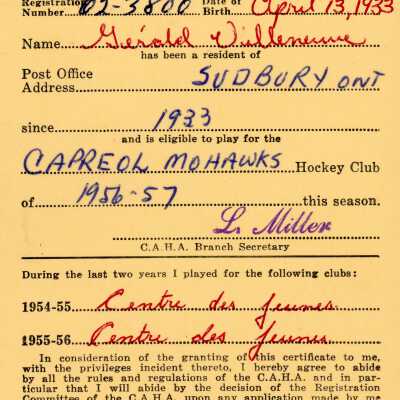 Registration Number 02-3800 Date of Birth April 13, 1933
Name Gérald Villeneuve
has been a resident of
Post Office Address SUDBURY ONT
since 1933
and is eligible to play for the
CAPREOL MOHAWKS Hockey Club
of 1956-57 this season.
L. Miller
C.A.H.A. Branch Secretary
During the last two years I played for the following clubs:
1954-55 Centre des Jeunes
1955-56 Centre des Jeunes
In consideration of the granting of this certificate to me,
with the privileges incident thereto, I hereby agree to abide
by all the rules and regulations of the C.A.H.A. and in par-
ticular that I will abide by the decision of the Registration
Committee of the C.A.H.A. upon any application made by me